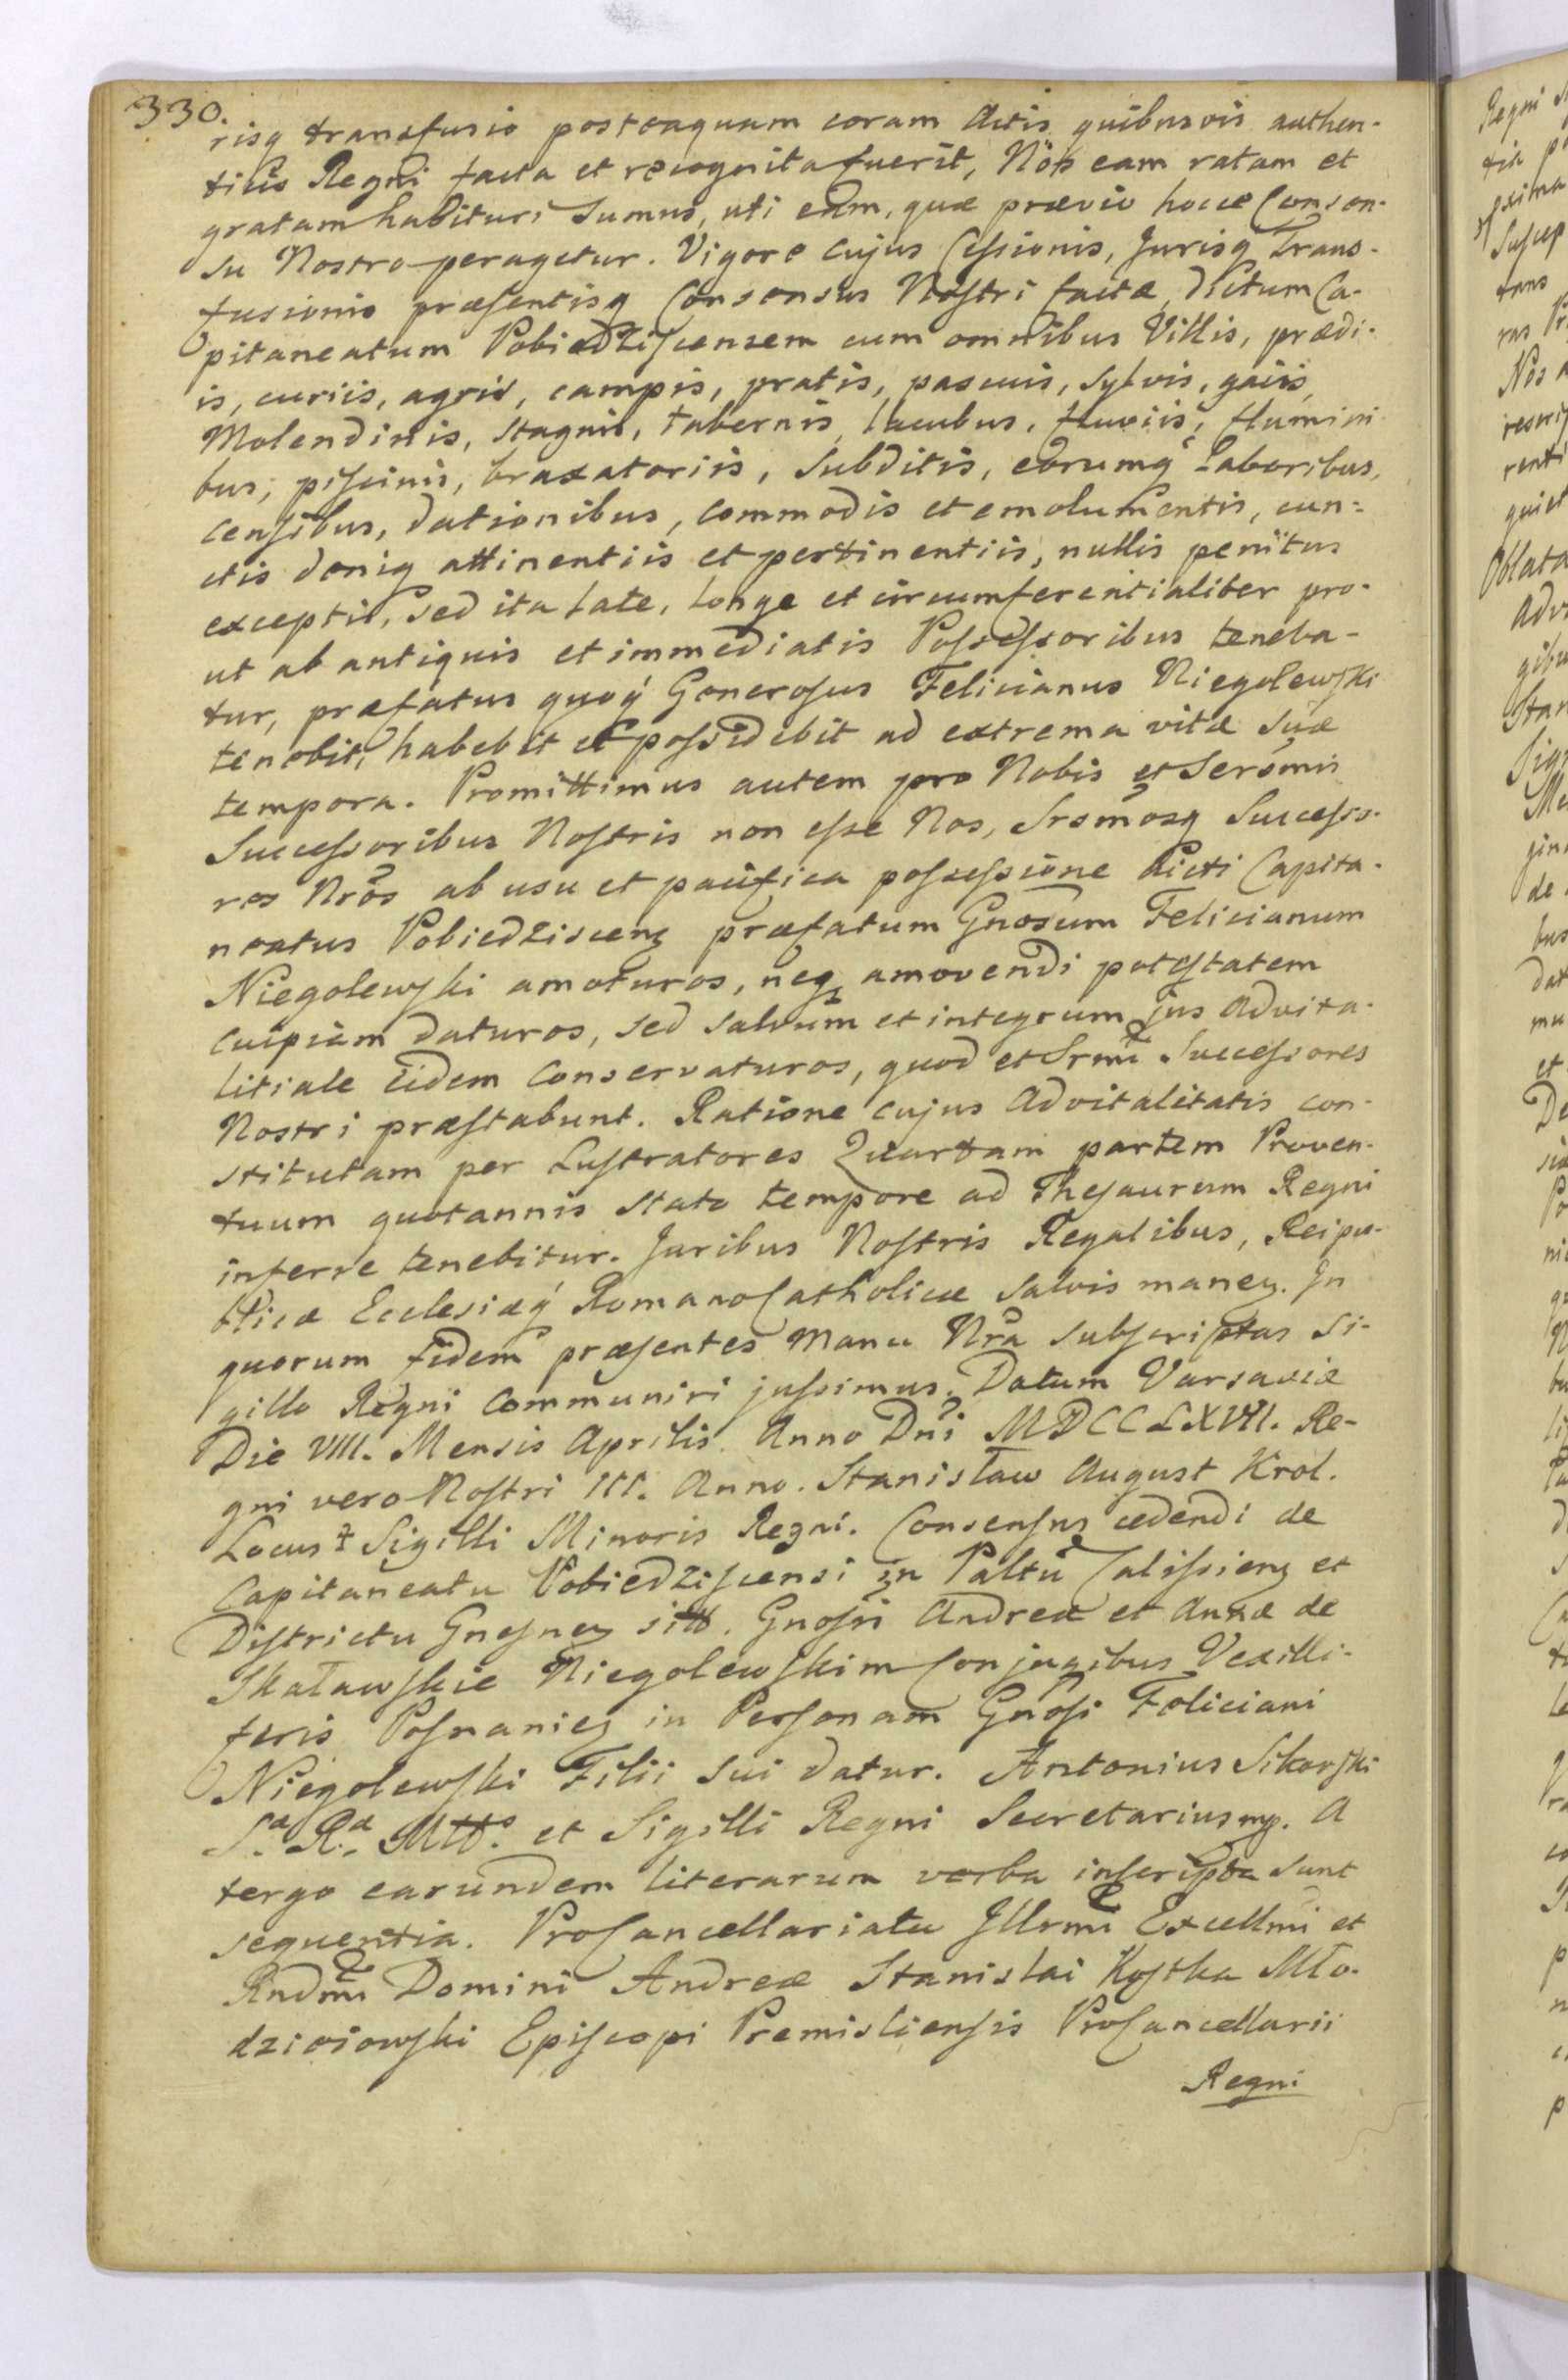 330.
risq transfusio posteaquam coram Actis quibusvis authen-
ticis Regni facta et recognita fuerit, Nos eam ratam et
gratam habituri sumus, uti eam, quæ prævio hocce Consen-
su Nostro peragetur. Vigore cujus Cessionis, Jurisq Trans-
fusionis præsentisq Consensus Nostri factæ, dictum Ca-
pitaneatum Pobiedziscensem cum omnibus Villis, prædi-
is, curiis, agris, campis, pratis, pascuis, sylvis, gaiis,
Molendinis, stagnis, tabernis, lacubus, fluviis, flumini
bus, piscinis, braxatoriis, subditis, eorumq Laboribus,
censibus, dationibus, commodis et emolumentis, cun-
ctis deniq attinentiis et pertinentiis, nullis penitus
exceptis, sed ita late, longe et circumferentialiter pro-
ut ab antiquis et immediatis Possessoribus teneba-
tur, præfatus quoq Generosus Felicianus Niegolewski
tenebit, habebit et possidebit ad extrema vitæ suæ
tempora. Promittimus autem pro Nobis et Serenmis
Successoribus Nostris non esse Nos, Srsmosq Successo-
res Nros ab usu et pacifica possessione dicti Capita-
neatus Pobiedziscens præfatum Gnosum Felicianum
Niegolewski amoturos, neq amovendi potestatem
cuipiam daturos, sed salvum et integrum jus Advita-
litiale Eidem conservaturos, quod et Srmi Successores
Nostri præstabunt. Ratione cujus Advitalitatis con-
stitutam per Lustratores Quartam partem Proven-
tuum quotannis stato tempore ad Thesaurum Regni
inferre tenebitur. Juribus Nostris Regalibus, Reipu-
blicæ Ecclesiæq Romano Catholicæ salvis manen. In
quorum fidem præsentes Manu Nra subscriptas Si-
gillo Regni communiri jussimus. Datum Varsaviæ
Die VIII. Mensis Aprilis. Anno Dni MDCCLXVII. Re-
gni vero Nostri III. Anno. Stanisław August Krol.
Locus Sigilli Minoris Regni. Consensus cedendi de
Capitaneatu Pobiedziscensi in Paltu Calissien et
Districtu Gnesnen sitt. Gnosri Andreæ et Annæ de
Skaławskie Niegolewskim Conjugibus Vexilli-
feris Posnanien in Personam Gnosi Feliciani
Niegolewski Filii sui datur. Antonius Sikorski
S. R. Mtts. et Sigilli Regni Secretarius mp. A
tergo earundem literarum verba inscripta sunt
sequentia. ProCancellariatu Illrmi Excellmi et
Rndmi Domini Andreæ Stanislai Kostka Mło-
dzieiowski Episcopi Premisliensis ProCancellarii
Regni